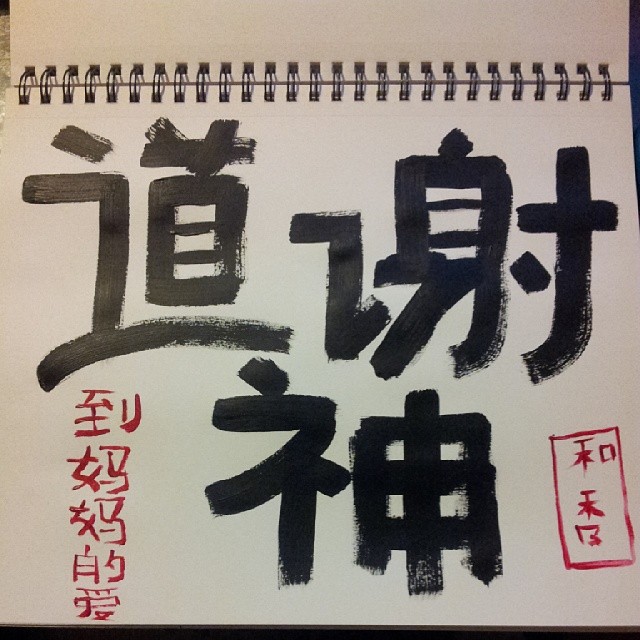 道谢
神
到妈妈的爱
和香